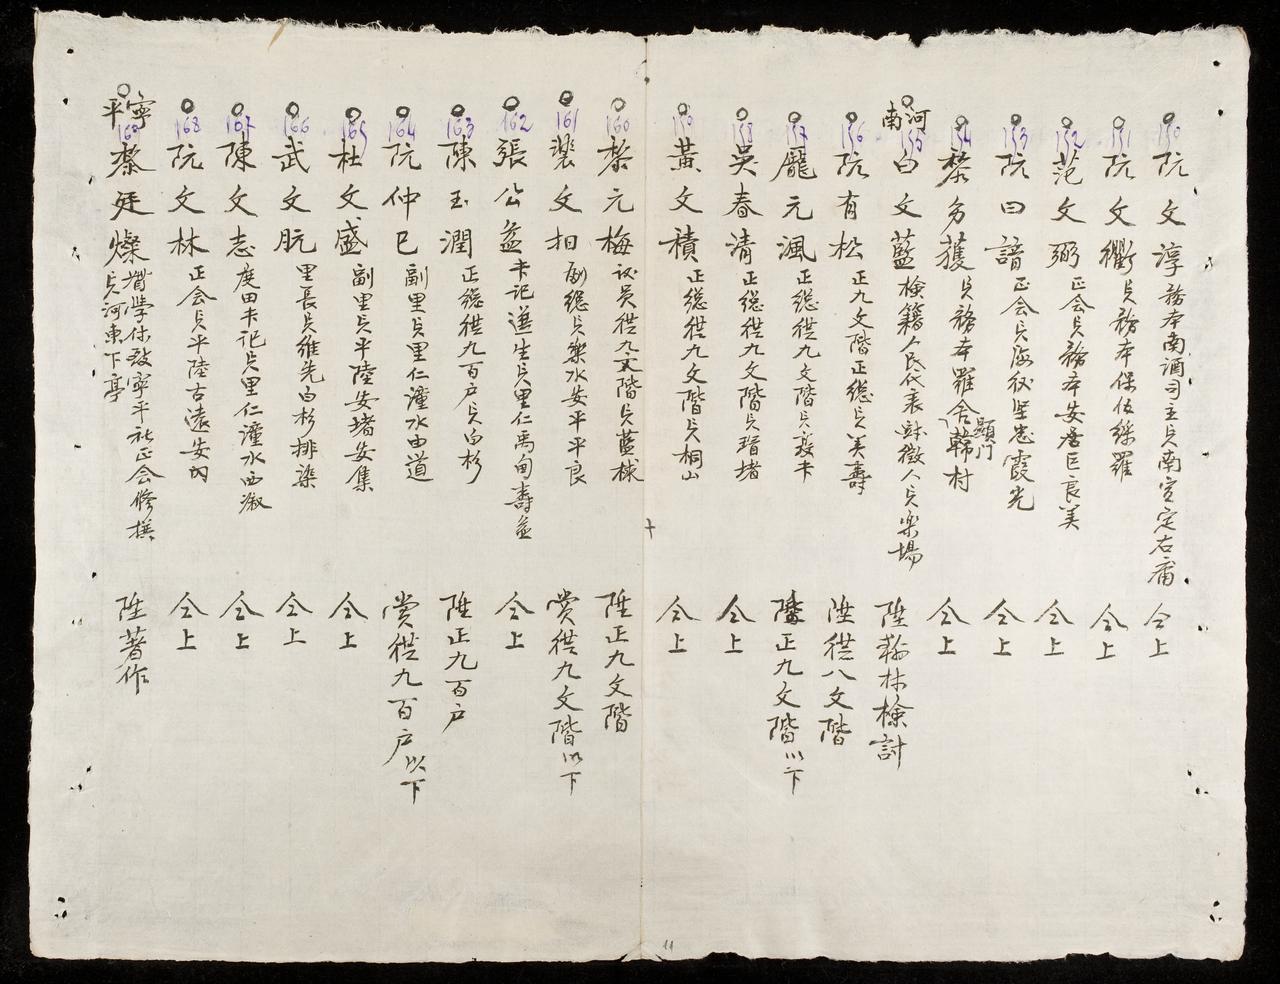 150 阮文淳 務本南酒司主貟南定定右甯 仝上
151 阮文衢 貟務本保伍綠羅 仝上
152 范文弼 正会貟務本安居巨良美 仝上
153 阮曰諳 正会貟海後堅忠霞光 仝上
154 黎务獲 貟務本羅舍韩村 仝上
顯门
河南
155 白文藍 檢籍人民代表財徵人貟楽場 陞翰林檢討
156 阮有松 正九文階正總貟美壽 陞從八文階
157 龐元渢 正總從九文階貟義卡 陞正九文階以下
158 吳春清 正總從九文階貟瑨堵 仝上
159 黃文積 正總從九文階貟桐山 仝上
160 黎元梅 议员從九文階貟藍梂 陞正九文階
161 裴文抇 副總貟楽水安平平良 赏從九文階以下
162 張公益 卡记遊生貟里仁禹甸壽益 仝上
163 陳玉潤 正總從九百户貟白杉 陞正九百户
164 阮仲巳 副里貟里仁潼水由道 赏從九百户以下
165 杜文盛 副里貟平陸安堵安集 仝上
166 武文朊 里長貟維先白杉排染 仝上
167 陳文志 度田卡记貟里仁潼水西淑 仝上
168 阮文林 正会貟平陸古遠安内 仝上
寧平
169 黎廷燦 督學休致寧平社正会修撰 貟河東下亭 陞著作
11